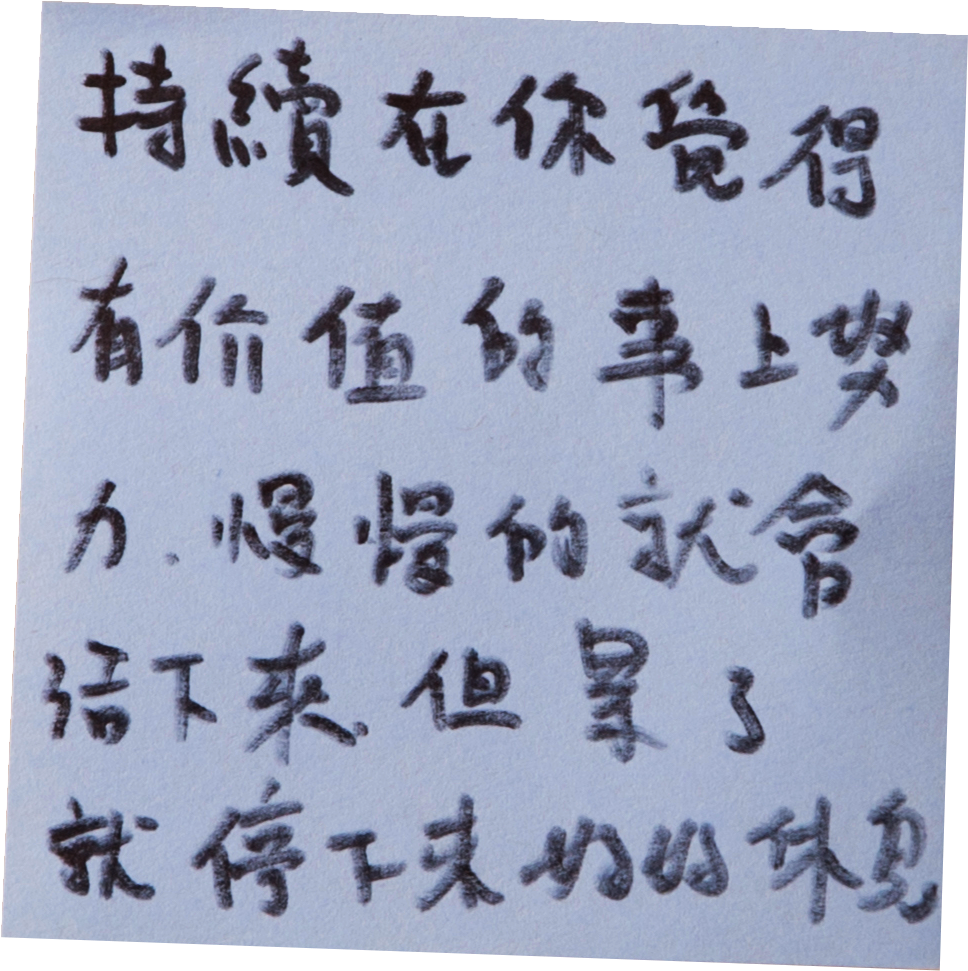 持續在你覺得
有价值的事上努
力.慢慢的就会
活下來.但累了
就停下来好好休息